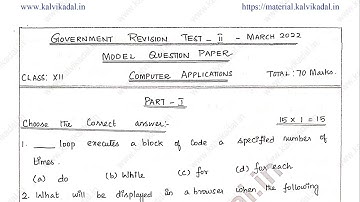 www.kalvikadal.in https://material.kalvikadal.in
GOVERNMENT REVISION TEST - II - MARCH 2022
MODEL QUESTION PAPER
CLASS: XII COMPUTER APPLICATIONS TOTAL: 70 Marks.
PART - I
Choose the Correct answer:- 15 x 1 = 15
1. ____ loop executes a block of code a specified number of
times.
(a) do (b) While (c) for (d) for each
2. What will be displayed in a browser when the following